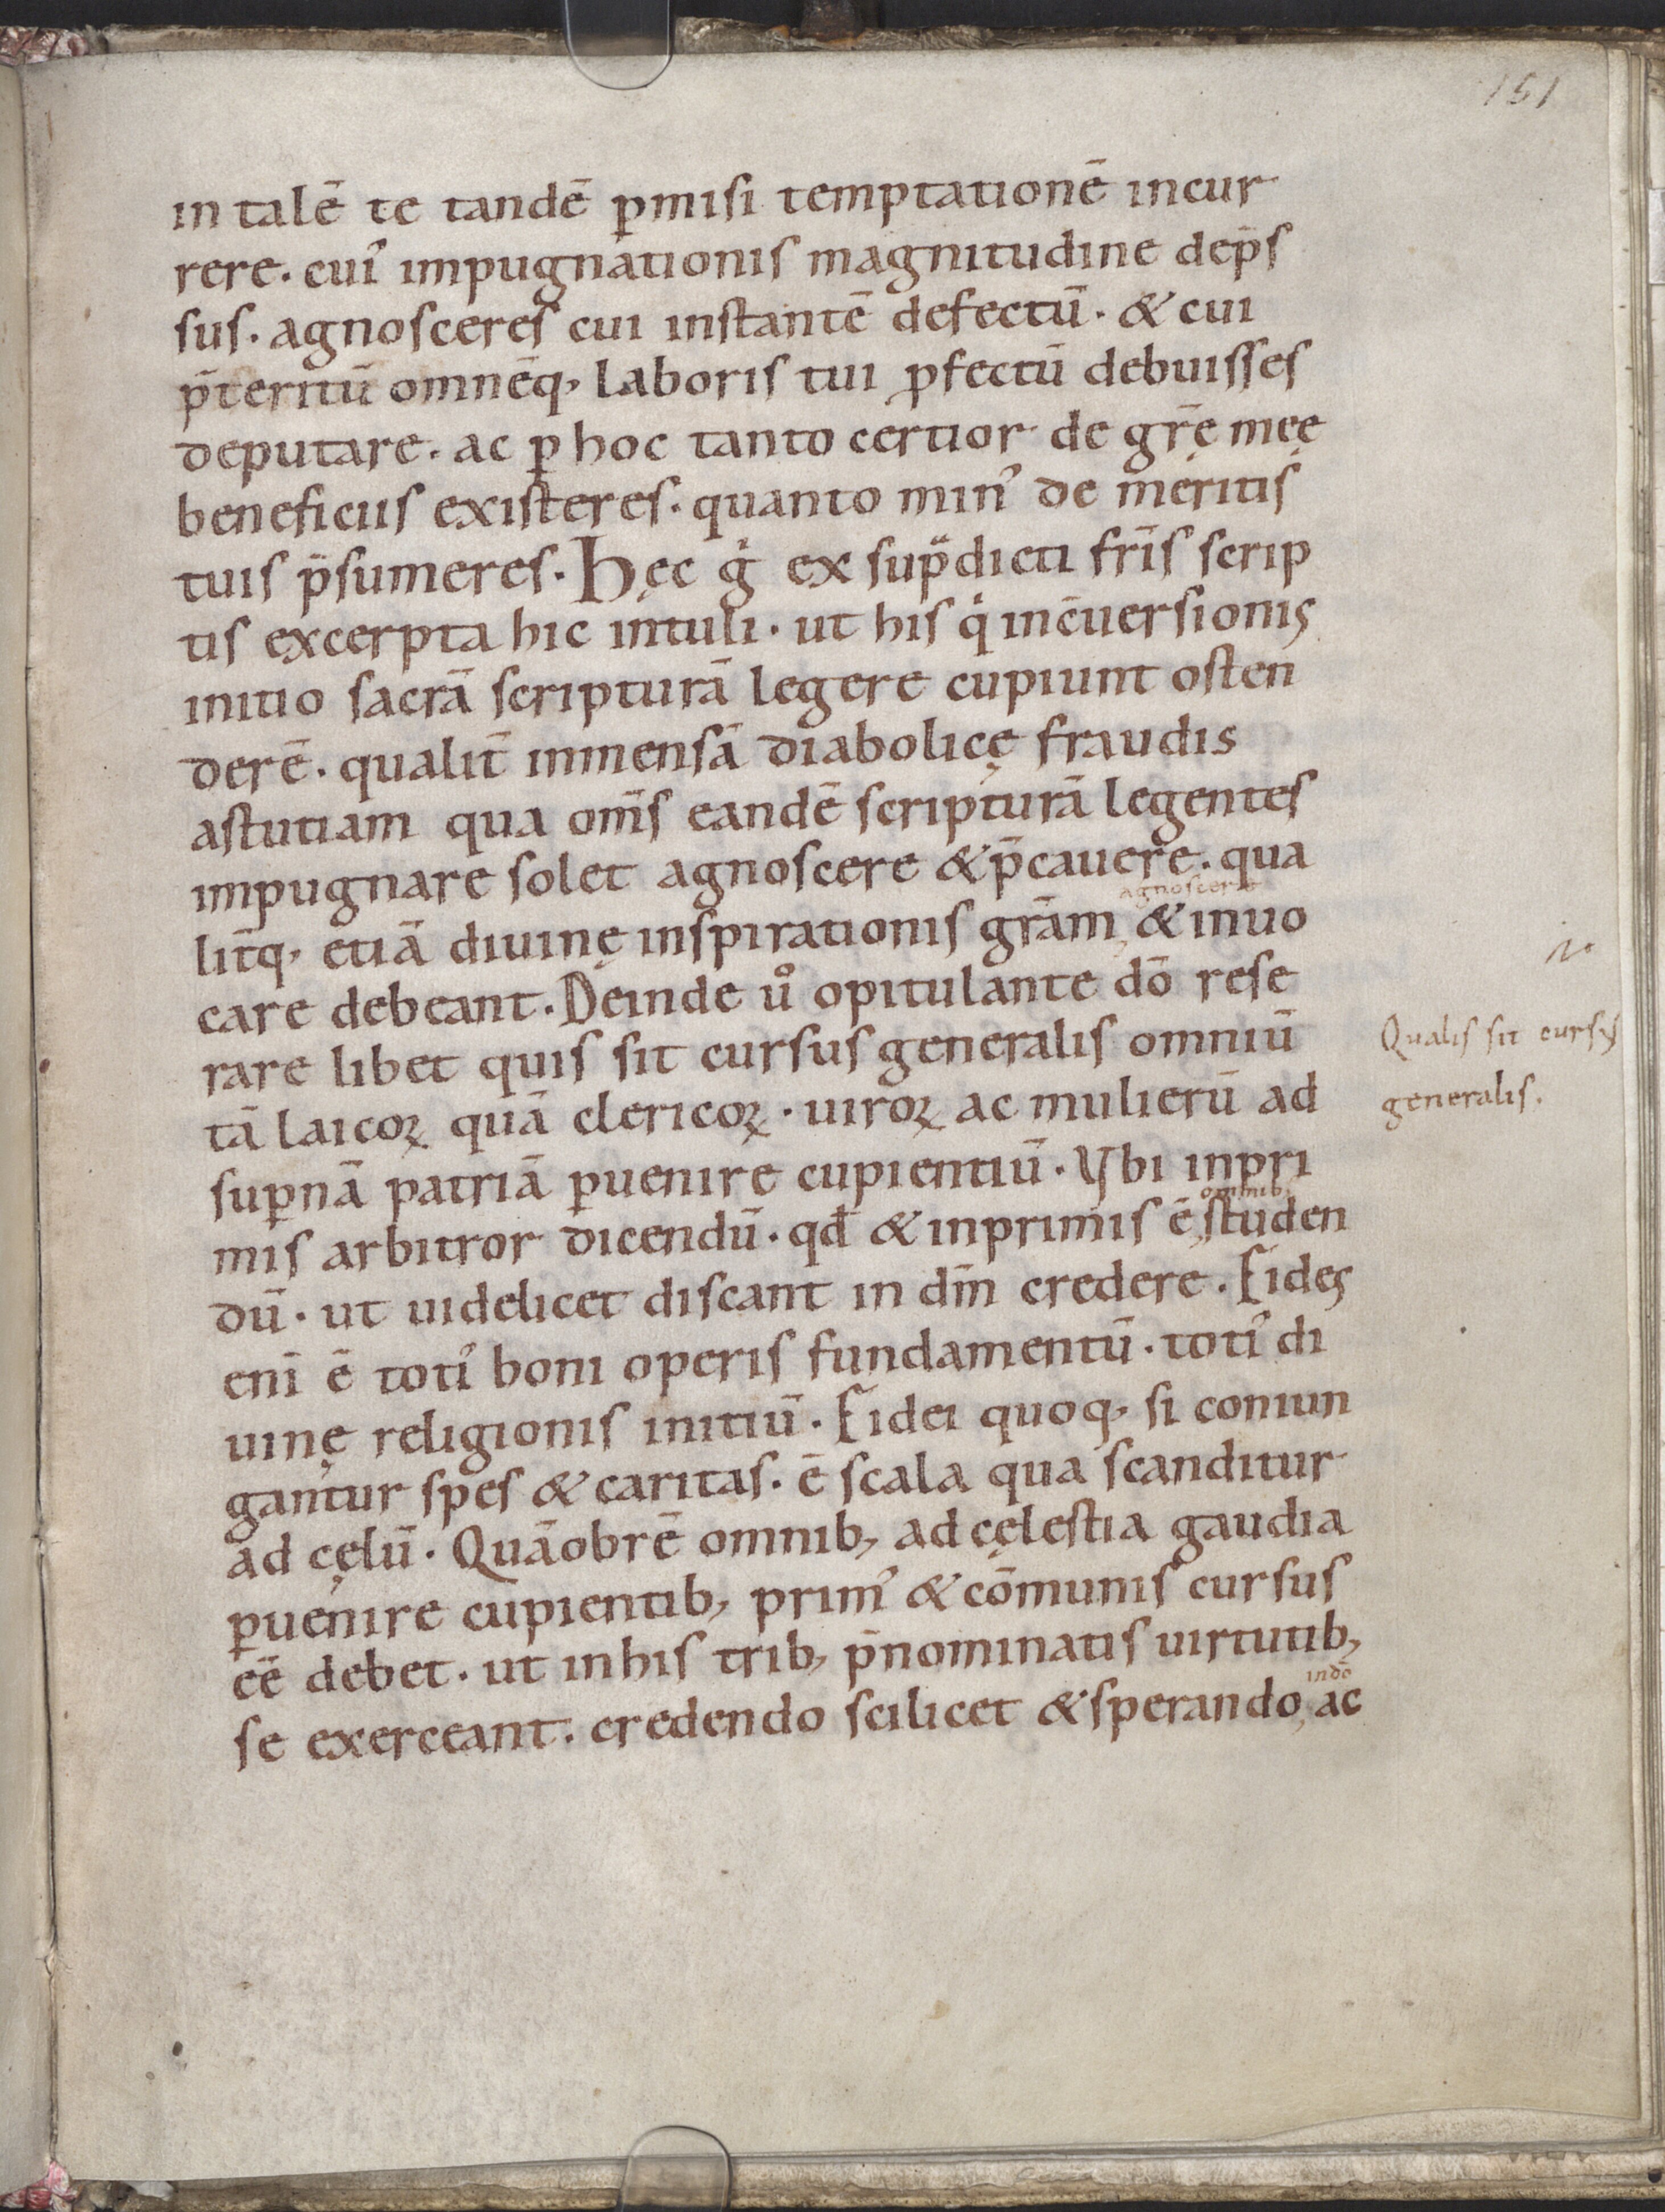 151
in talē te tandē ꝑmisi temptationē incur
rere. cui᾿ impugnationis magnitudine dep̄s
sus. agnosceres cui instantē defectū. & cui
p̄teritū omnēq, laboris tui ꝓfectū debuisses
deputare. ac ꝑ hoc tanto certior de gr̄ę meę
beneficiis existeres. quanto min᾿ de meritis
tuis p̄sumeres. Hęc g̍ ex sup̄dicti fr̄is scrip
tis excerpta hic intuli. ut his q̍ in c̄uersionis
initio sacrā scripturā legere cupiunt osten
derē. qualit̄ inmensā diabolicę fraudis
astutiam qua om̄s eandē scripturā legentes
impugnare solet agnoscere & p̄cauere. qua
agnoscere
lit̄q, etiā diuinę inspirationis gr̄am, & inuo
care debeant. Deinde uͦ opitulante dō rese
rare libet quis sit cursus generalis omniū
Qualis sit cursus
tā laicoꝝ quā clericoꝝ. uiroꝝ ac mulierū ad
generalis.
suꝑnā patriā ꝑuenire cupientiū. Vbi inpri
omnib,
mis arbitror dicendū. qd̄ & inprimis ē, studen
dū. ut uidelicet discant in dn̄m credere. Fides
eni̅ ē toti᾿ boni operis fundamentū. toti᾿ di
uinę religionis initiū. Fidei quoq, si coniun
gantur spes & caritas. ē scala qua scanditur
ad cęlū. Quāobrē omnib, ad cęlestia gaudia
ꝑuenire cupientib, prim᾿ & cōmunis cursus
eē debet. ut in his trib, p̄nominatis uirtutib,
in dō
se exerceant. credendo scilicet & sperando, ac